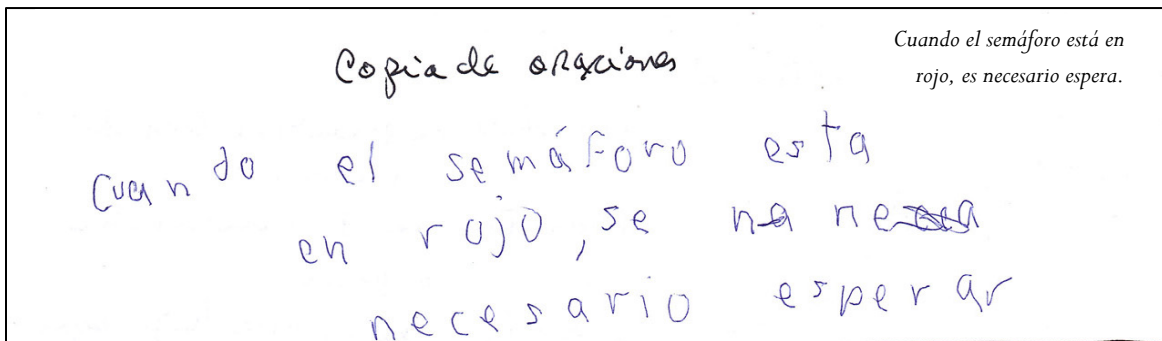 Copia de oraciones
Cuando el semáforo está en
rojo, es necesario espera.
cuando el semáforo esta
en rojo, se na ne
necesario esperar